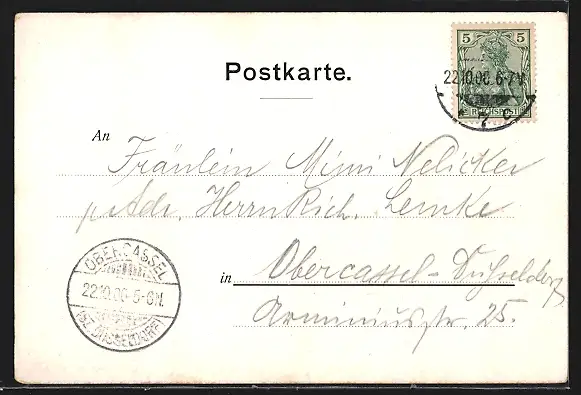 5 5
REICHSPOST
22.10.00.6-7V.
Postkarte.
An
Fräulein Mimi Nelicker
p. Adr. Herrn Rich. Lemke
in Obercassel-Düsseldorf
Arminiusstr. 25.
OBERCASSEL
22.10.00.5-6N.
(BZ. DÜSSELDORF)